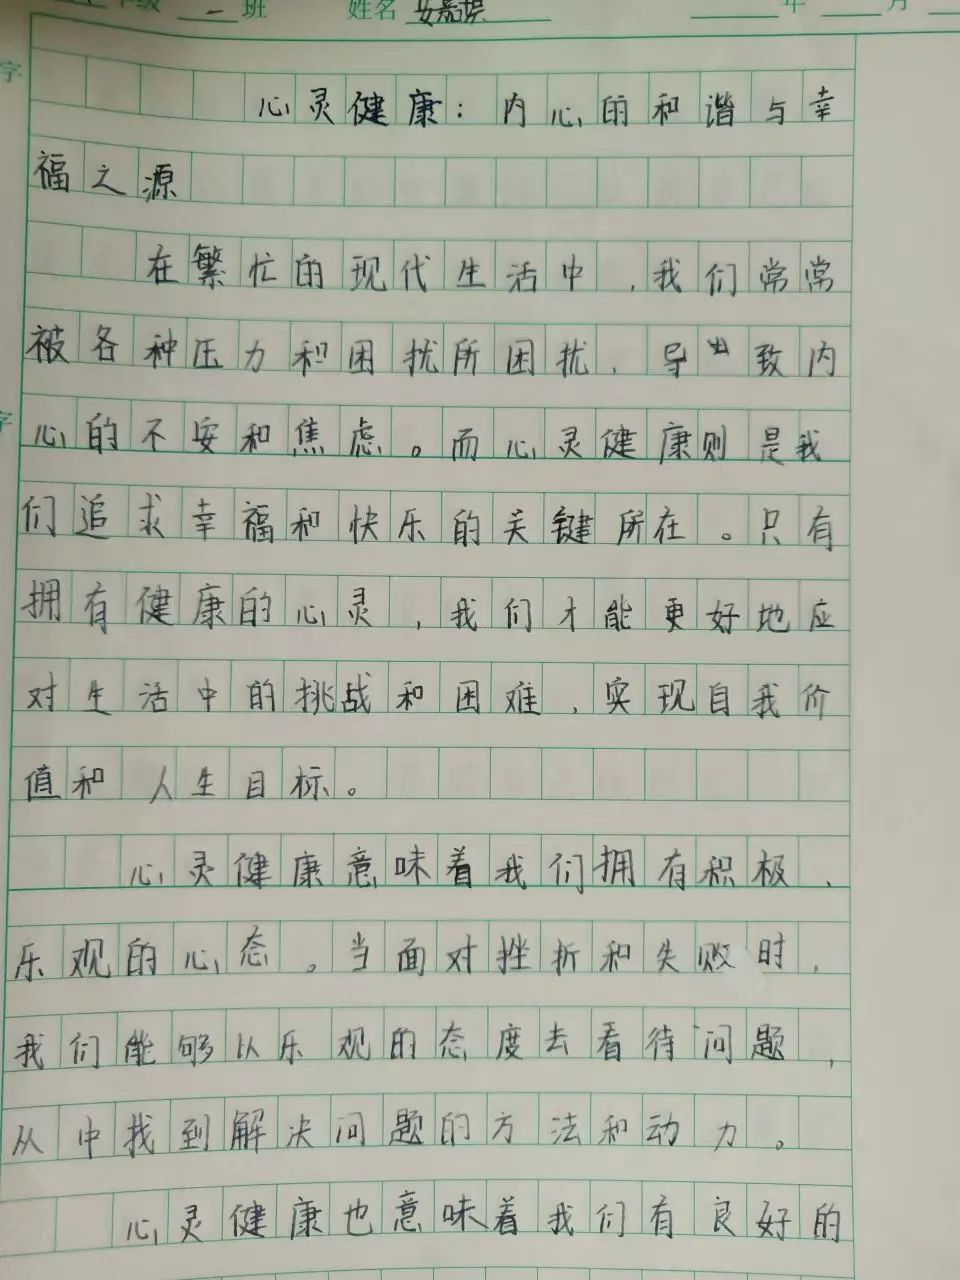 级 二 班 姓名 年 月
字
心灵健康：内心的和谐与幸
福之源
在繁忙的现代生活中，我们常常
被各种压力和困扰所困扰，导出致内
字
心的不安和焦虑。而心灵健康则是我
们追求幸福和快乐的关键所在。只有
拥有健康的心灵，我们才能更好地应
对生活中的挑战和困难，实现自我价
值和人生目标。
心灵健康意味着我们拥有积极、
乐观的心态。当面对挫折和失败时，
我们能够从乐观的态度去看待问题，
从中找到解决问题的方法和动力。
心灵健康也意味着我们有良好的